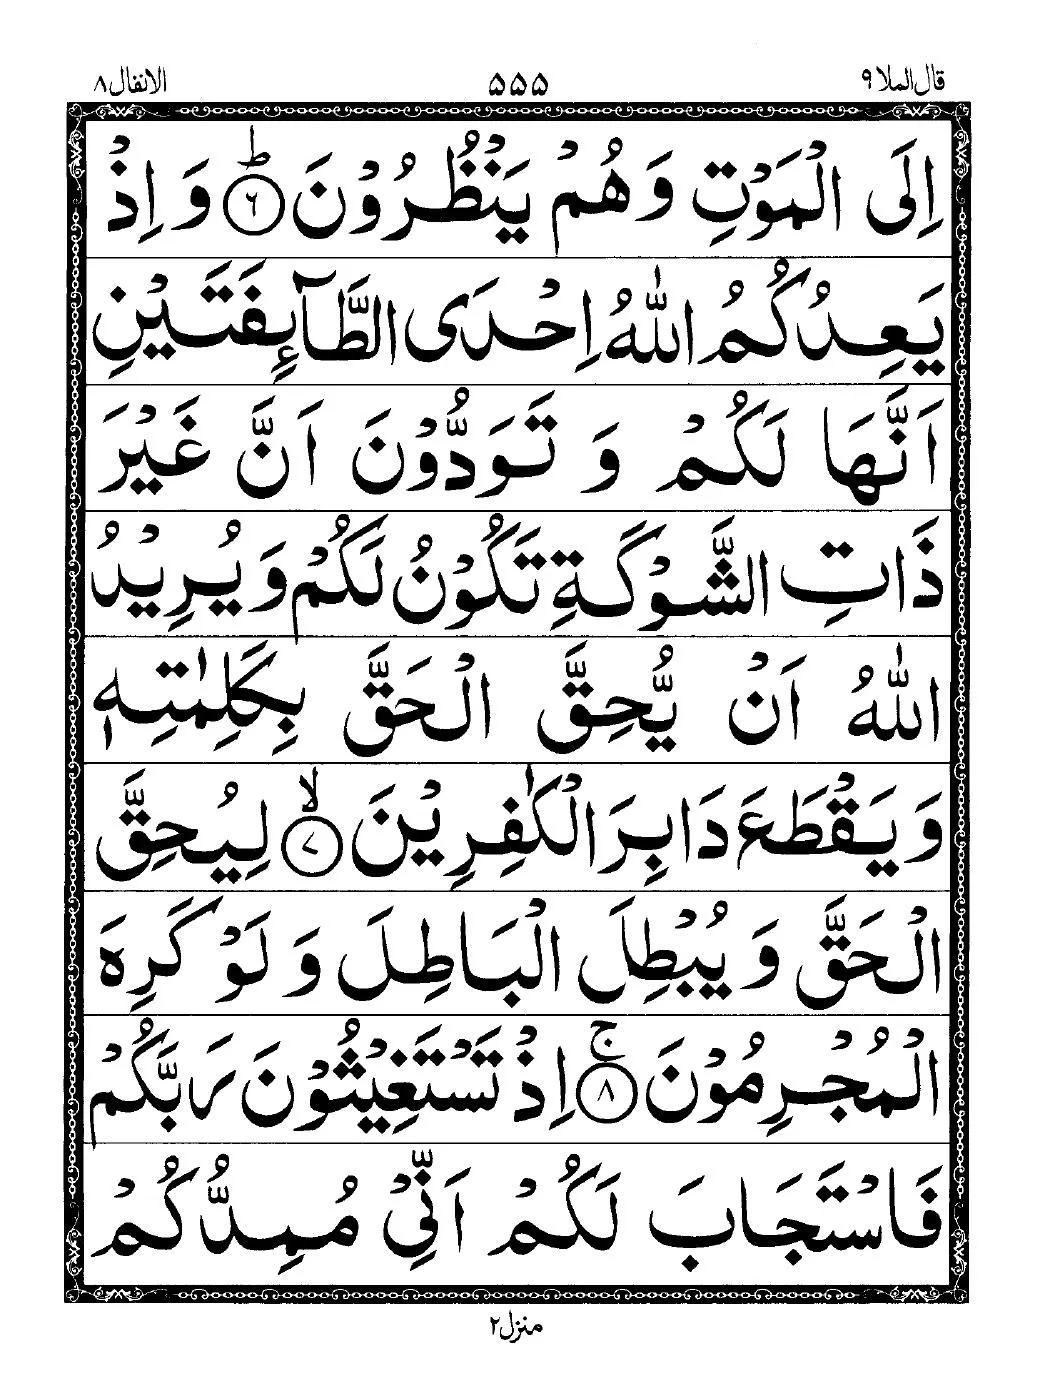 قال الملا ۹ ۵۵۵ الانفال ۸
اِلَى الْمَوْتِ وَهُمْ يَنْظُرُوْنَ ؕ‏ ﴿۶﴾ وَاِذْ
يَعِدُكُمُ اللّٰهُ اِحْدَى الطَّآئِفَتَيْنِ
اَنَّهَا لَكُمْ وَ تَوَدُّوْنَ اَنَّ غَيْرَ
ذَاتِ الشَّوْكَةِ تَكُوْنُ لَكُمْ وَيُرِيْدُ
اللّٰهُ اَنْ يُّحِقَّ الْحَقَّ بِكَلِمٰتِهٖ
وَيَقْطَعَ دَابِرَ الْكٰفِرِيْنَ ۙ‏ ﴿۷﴾ لِيُحِقَّ
الْحَقَّ وَيُبْطِلَ الْبَاطِلَ وَلَوْ كَرِهَ
الْمُجْرِمُوْنَ ۚ‏ ﴿۸﴾ اِذْ تَسْتَغِيْثُوْنَ رَبَّكُمْ
فَاسْتَجَابَ لَكُمْ اَنِّىْ مُمِدُّكُمْ
منزل ۲